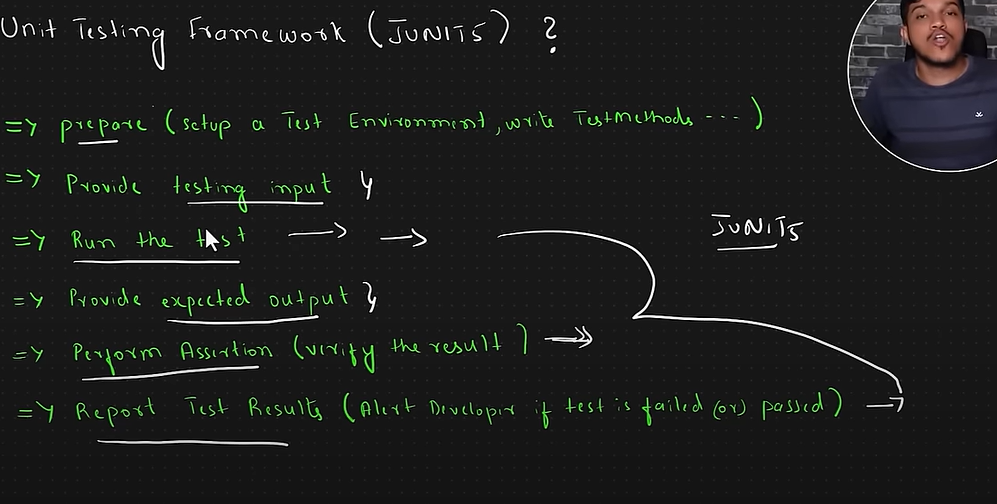 Unit Testing Framework (JUNIT5) ?
=> prepare (setup a Test Environment, write TestMethods ---)
=> Provide testing input
=> Run the test
JUNIT5
=> Provide expected output
=> Perform Assertion (verify the result)
=> Report Test Results (Alert Developer if test is failed (or) passed)